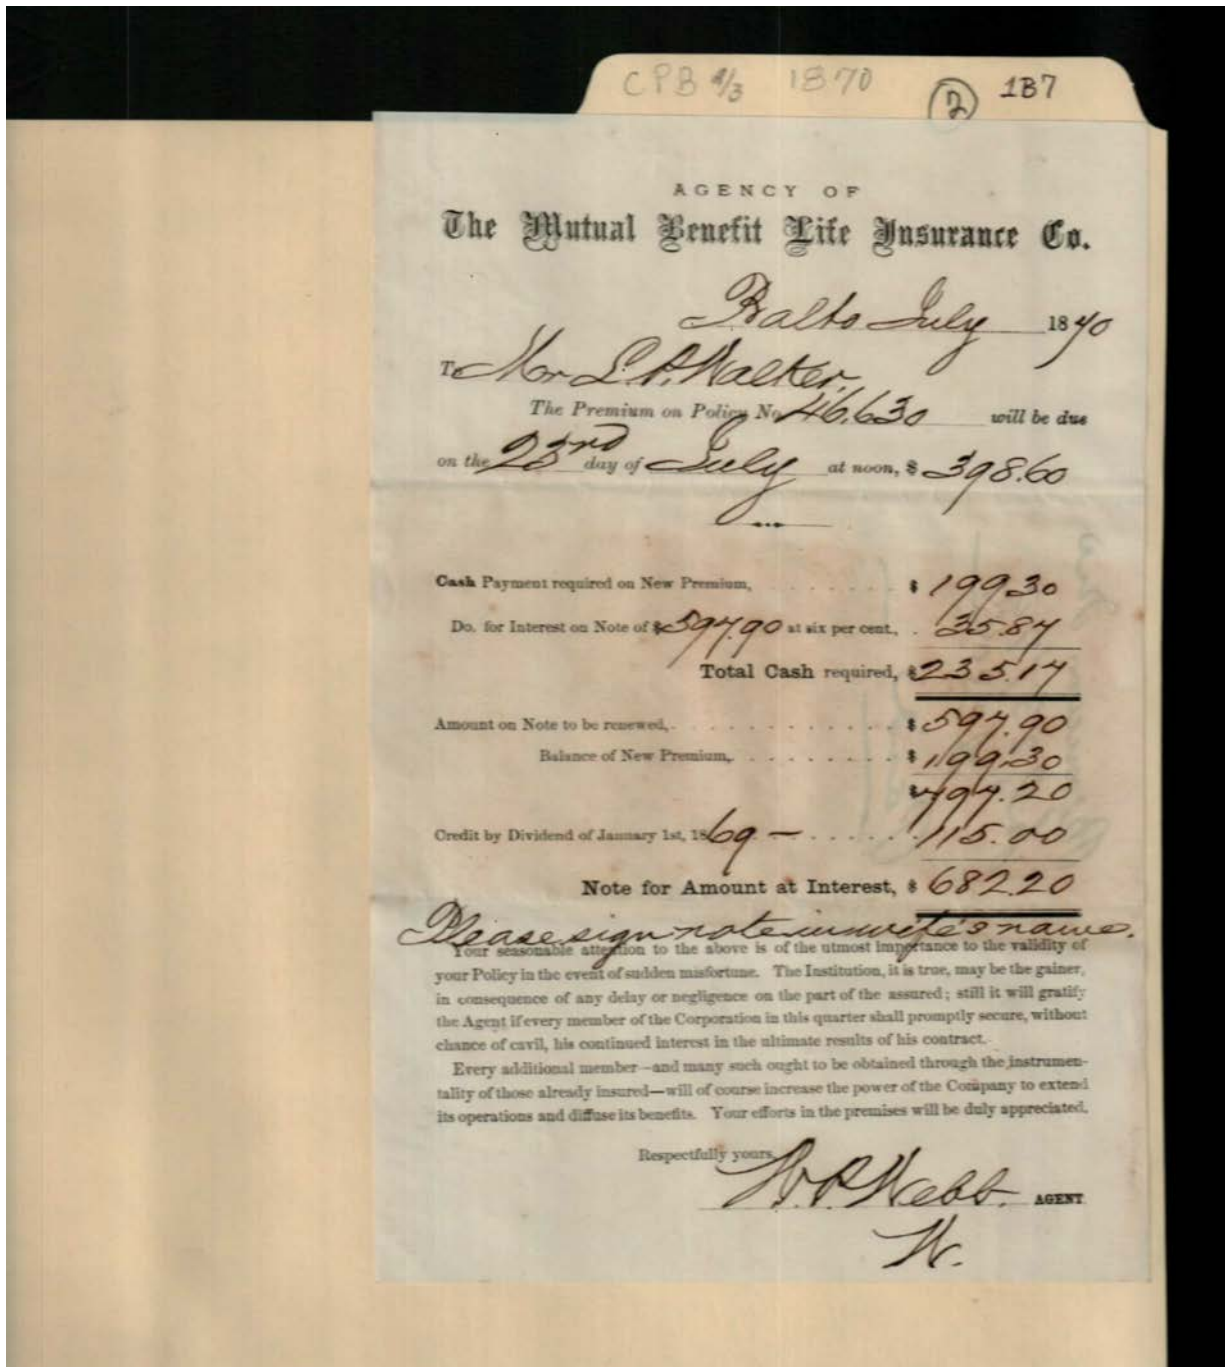 CPB 4/3 1870 2 1B7
AGENCY OF
The Mutual Benefit Life Insurance Co.
Balto July 1870
To Mr S. P. Walker.
The Premium on Policy No 46,630 will be due
on the 23rd day of July at noon, $ 398.60
Cash Payment required on New Premium, . . . . . . . $ 199.30
Do. for Interest on Note of $ 597.90 at six per cent., . 35.87
Total Cash required, $ 235.17
Amount on Note to be renewed, . . . . . . . . . . . $ 597.90
Balance of New Premium, . . . . . . . . . $ 199.30
$ 797.20
Credit by Dividend of January 1st, 1869 — . . . . . . 115.00
Note for Amount at Interest, $ 682.20
Please sign note in wife's name.
Your seasonable attention to the above is of the utmost importance to the validity of
your Policy in the event of sudden misfortune. The Institution, it is true, may be the gainer,
in consequence of any delay or negligence on the part of the assured; still it will gratify
the Agent if every member of the Corporation in this quarter shall promptly secure, without
chance of cavil, his continued interest in the ultimate results of his contract.
Every additional member—and many such ought to be obtained through the instrumen-
tality of those already insured—will of course increase the power of the Company to extend
its operations and diffuse its benefits. Your efforts in the premises will be duly appreciated.
Respectfully yours,
W. P. Webb. AGENT
W.